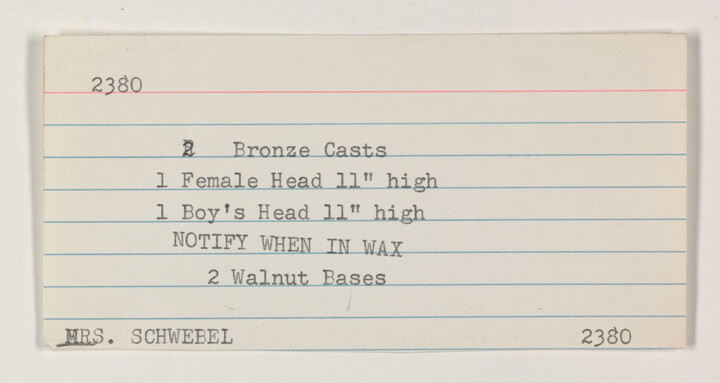 2380
2 Bronze Casts
1 Female Head 11" high
1 Boy's Head 11" high
NOTIFY WHEN IN WAX
2 Walnut Bases
MRS. SCHWEBEL 2380